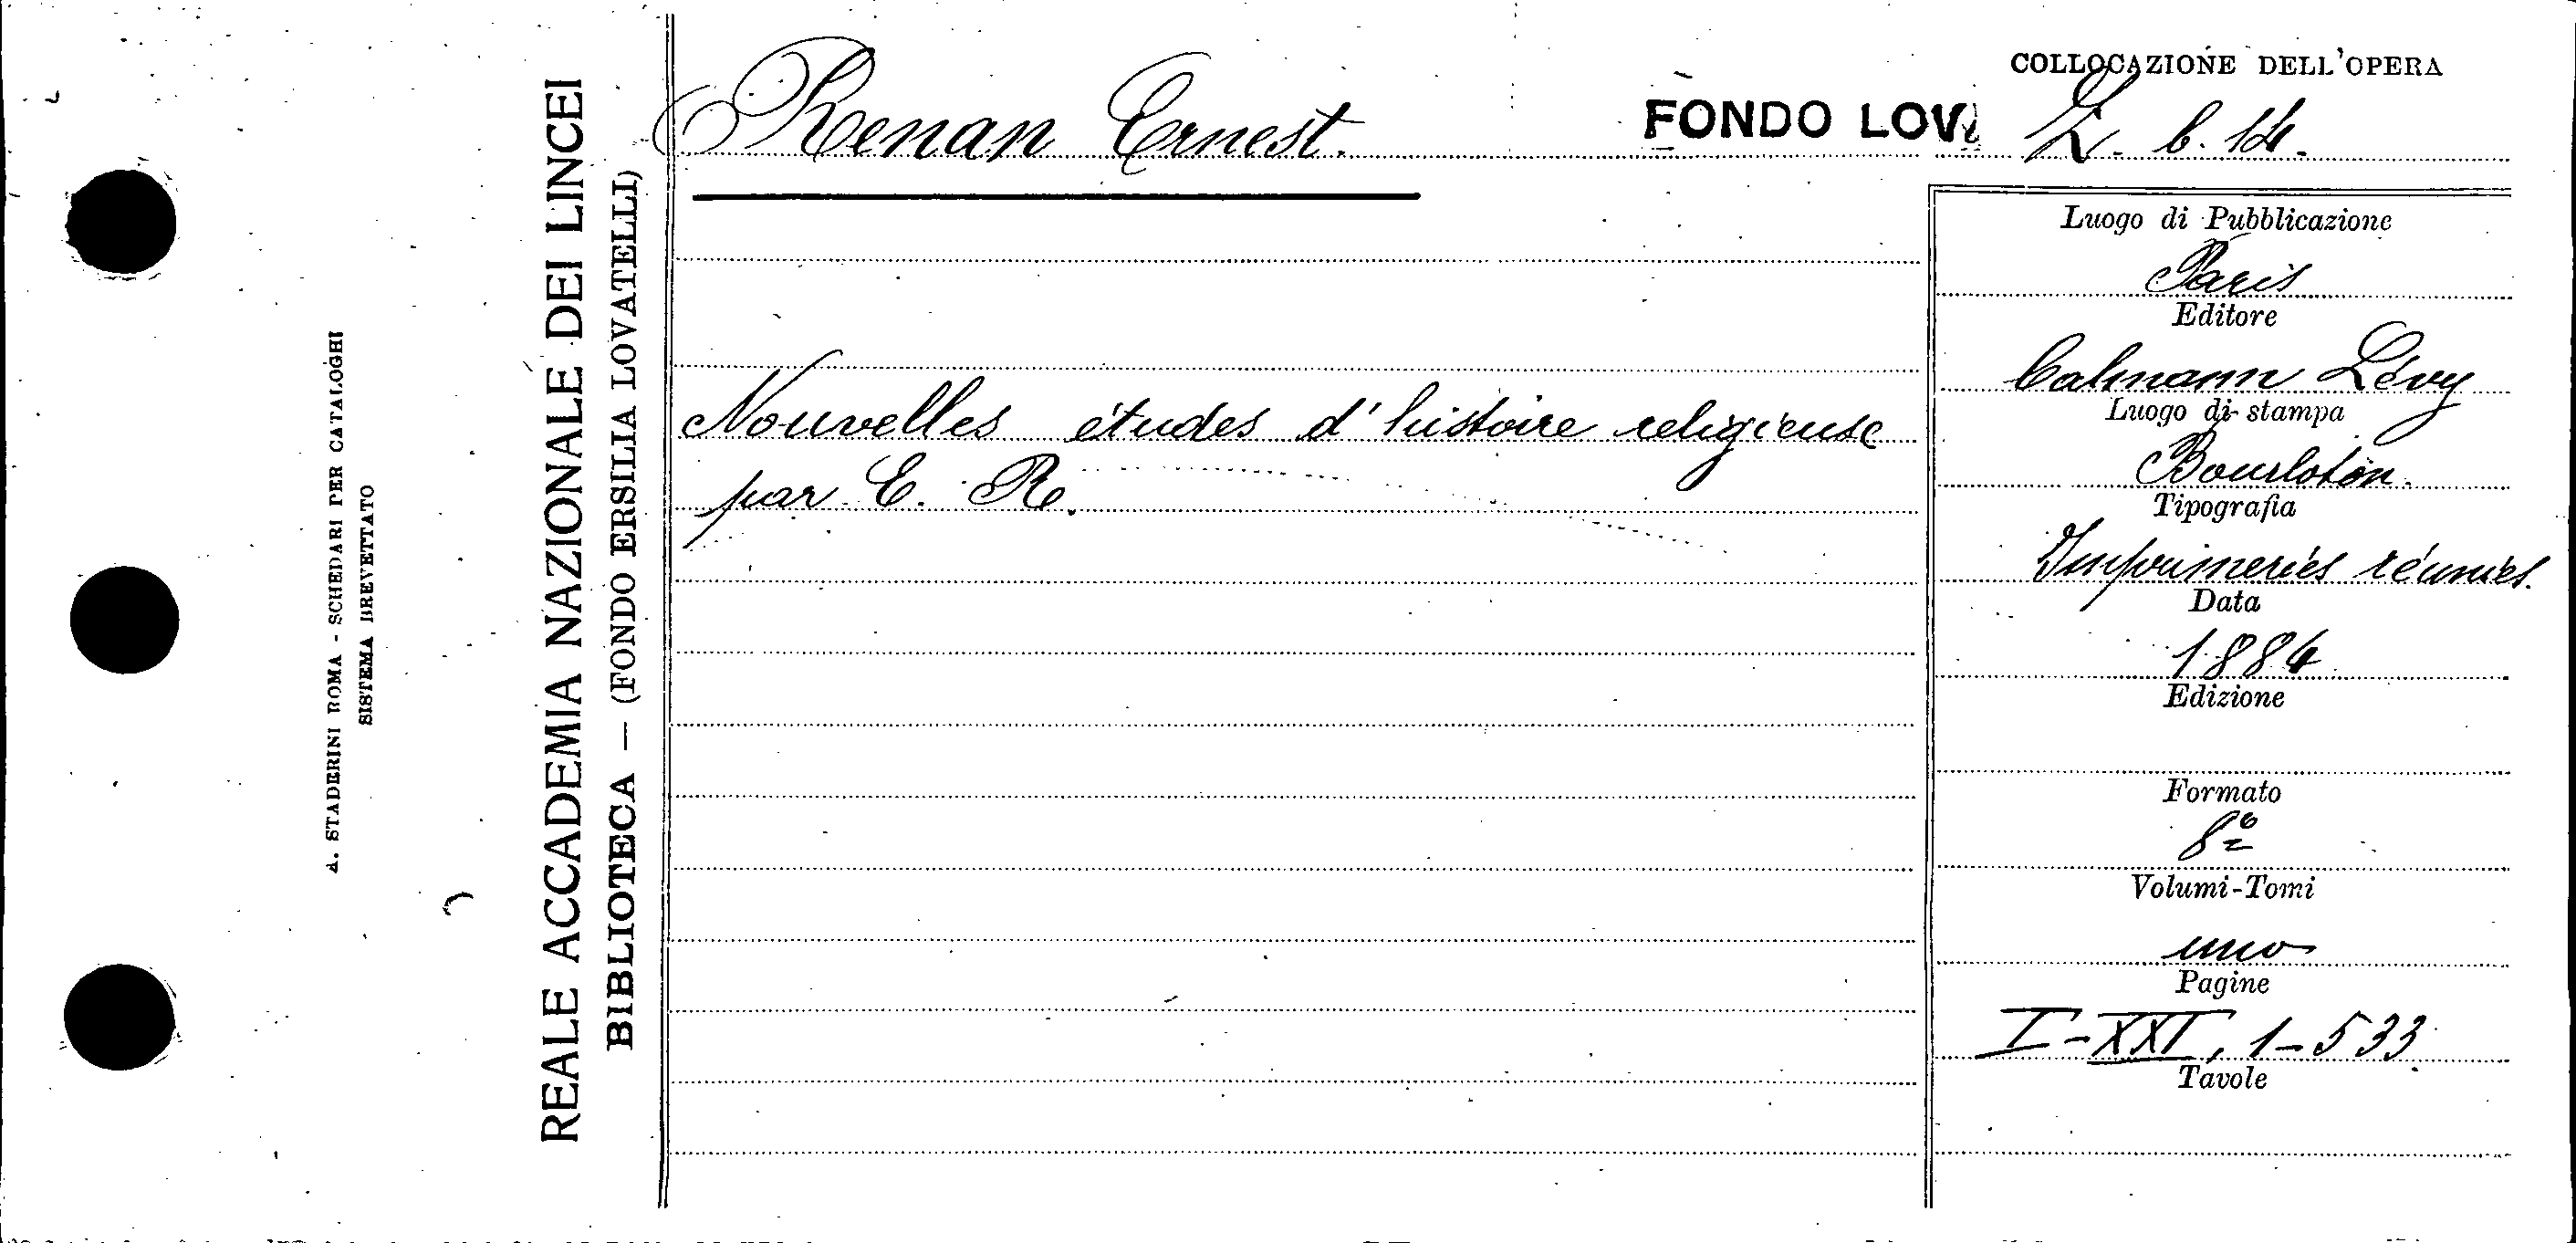 COLLOCAZIONE DELL'OPERA
Renan Ernest.
FONDO LOV
Z. b. 14.
Luogo di Pubblicazione
Paris
Editore
Calmann Lévy
Luogo di stampa
Bourloton.
Tipografia
Imprimeries réunies.
Data
1884
Edizione
Formato
8º
Volumi-Tomi
uno
Pagine
I-XXI, 1-533
Tavole
Nouvelles études d'histoire religieuse
par E. R.
REALE ACCADEMIA NAZIONALE DEI LINCEI
BIBLIOTECA — (FONDO ERSILIA LOVATELLI)
A. STADERINI ROMA - SCHEDARI PER CATALOGHI
SISTEMA BREVETTATO